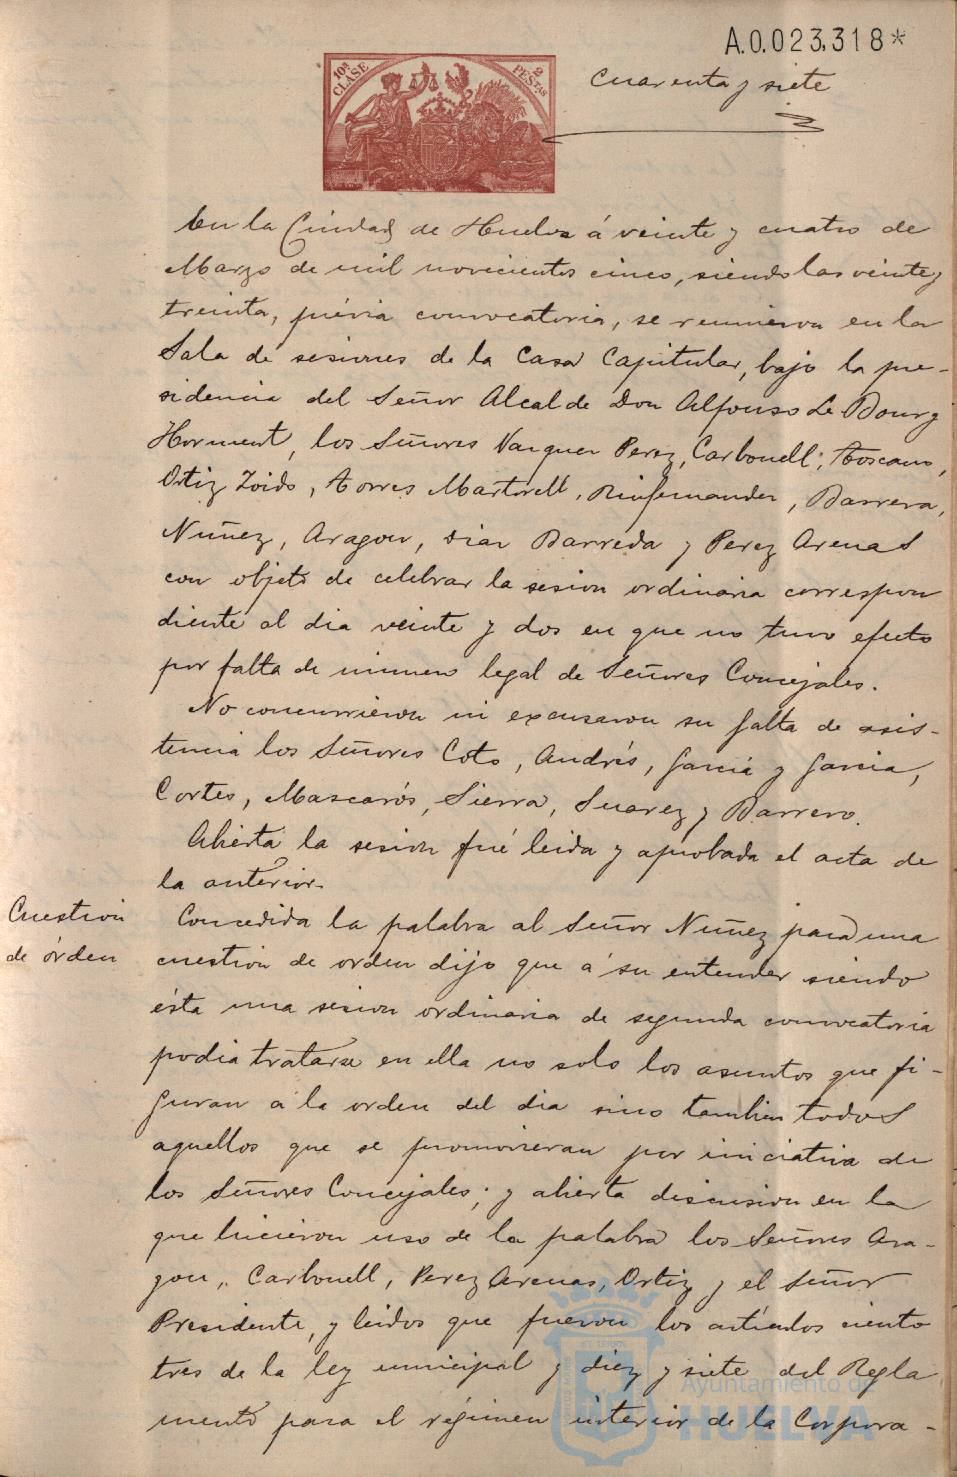 A.0.023,318*
10ª CLASE
2 PESTAS
Cuarenta y siete
En la Ciudad de Huelva á veinte y cuatro de
Marzo de mil novecientos cinco, siendo las veinte y
treinta, prévia convocatoria, se reunieron en la
Sala de sesiones de la Casa Capitular, bajo la pre-
sidencia del Señor Alcalde Don Alfonso Le Bourg
Horment, los Señores Vazquez Perez, Carbonell, Toscano,
Ortiz Zoido, Torres Martorell, Rinfernandez, Barrera,
Nuñez, Aragon, Diaz Barreda y Perez Arenas
con objeto de celebrar la sesion ordinaria correspon
diente al dia veinte y dos en que no tuvo efecto
por falta de número legal de Señores Concejales.
No concurrieron ni excusaron su falta de asis-
tencia los Señores Coto, Andrés, Garcia y Garcia,
Cortes, Mascarós, Sierra, Suarez y Barrero.
Abierta la sesion fué leida y aprobada el acta de
la anterior.
Cuestion
de órden
Concedida la palabra al Señor Nuñez para una
cuestion de orden dijo que á su entender siendo
ésta una sesion ordinaria de segunda convocatoria
podia tratarse en ella no solo los asuntos que fi-
guran á la orden del dia sino tambien todos
aquellos que se promovieran por iniciativa de
los Señores Concejales; y abierta discusion en la
que hicieron uso de la palabra los Señores Ara-
gon, Carbonell, Perez Arenas, Ortiz y el Señor
Presidente, y leidos que fueron los artículos ciento
tres de la ley municipal y diez y siete del Regla
mento para el régimen interior de la Corpora-
Ayuntamiento de
HUELVA